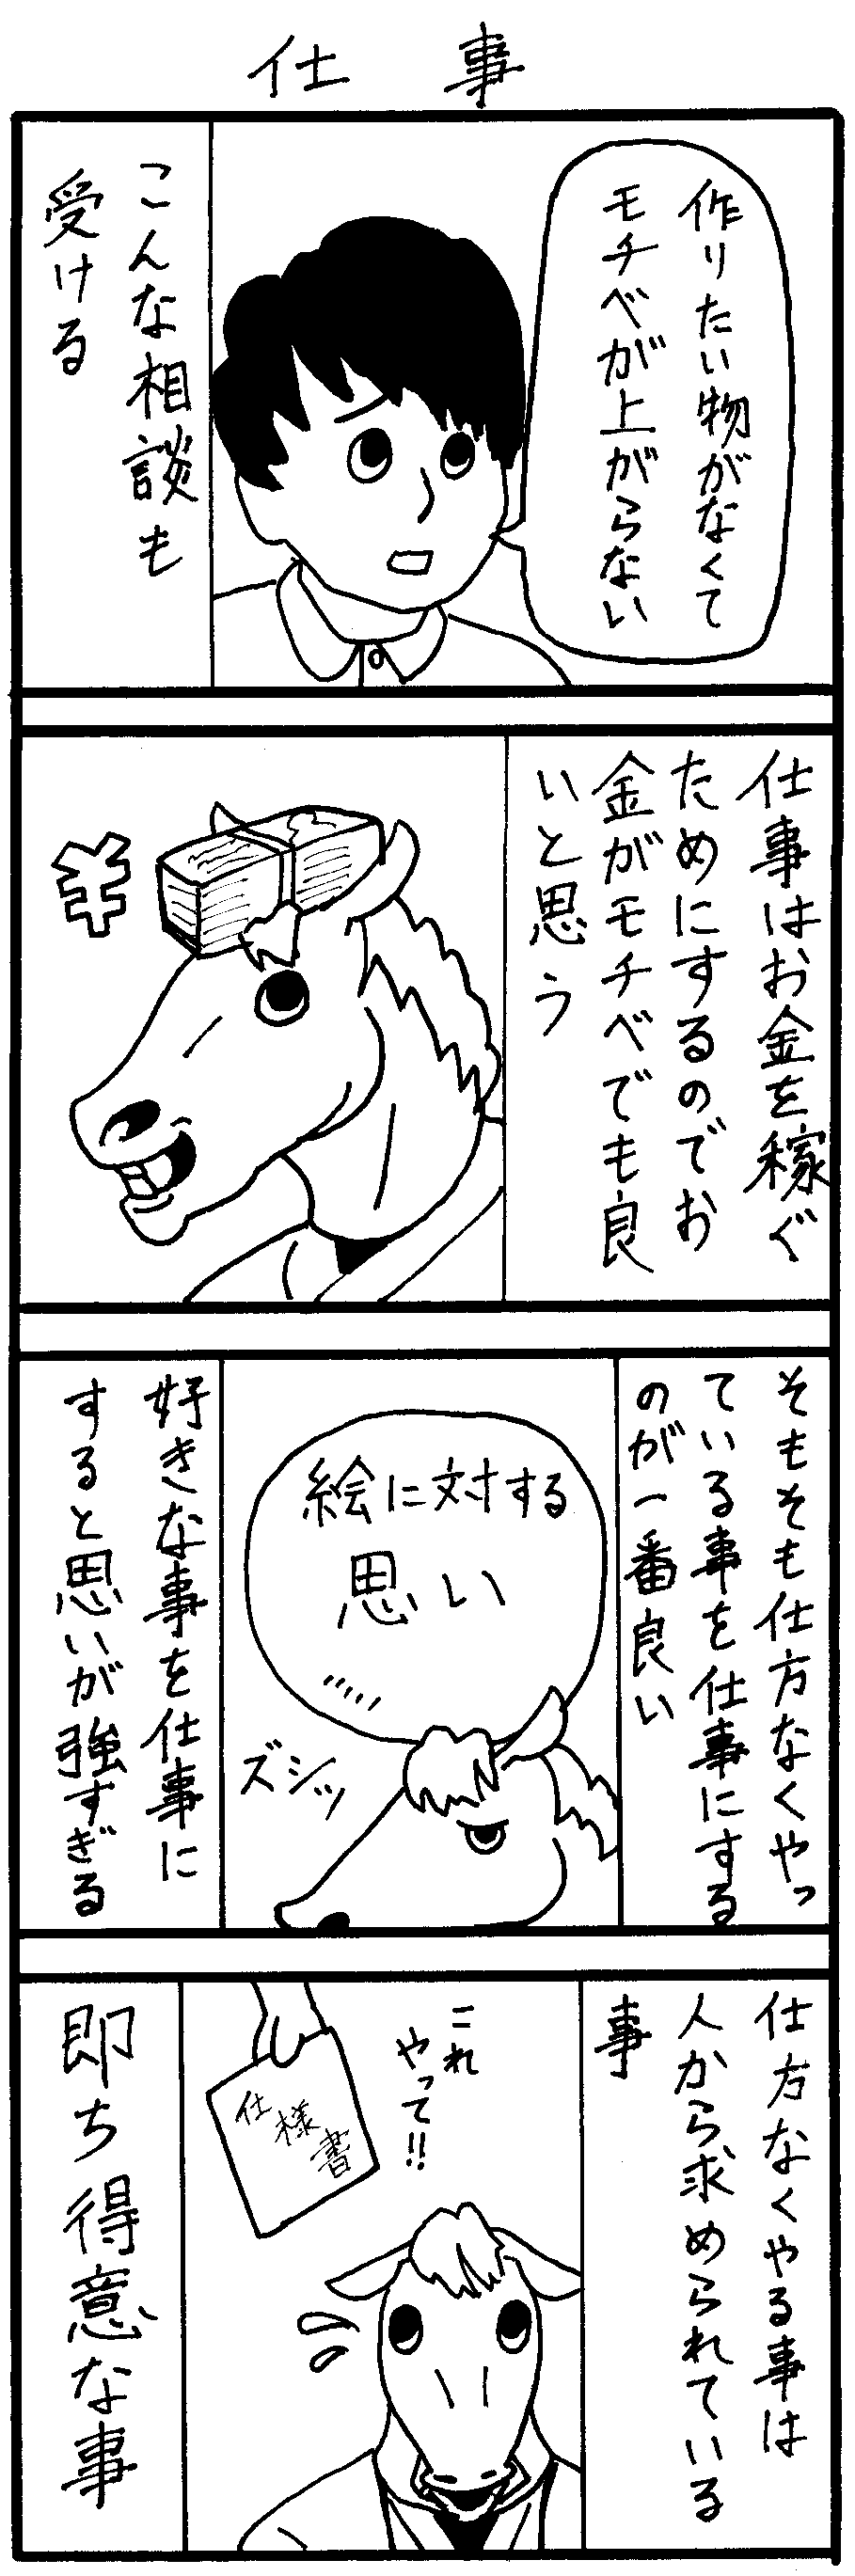 仕事
作りたい物がなくて
モチベが上がらない
こんな相談も
受ける
仕事はお金を稼ぐ
ためにするのでお
金がモチベでも良
いと思う
¥
そもそも仕方なくやっ
ている事を仕事にする
のが一番良い
絵に対する
思い
ズシッ
好きな事を仕事に
すると思いが強すぎる
仕方なくやる事は
人から求められている
事
これ
やって!!
仕様書
即ち得意な事